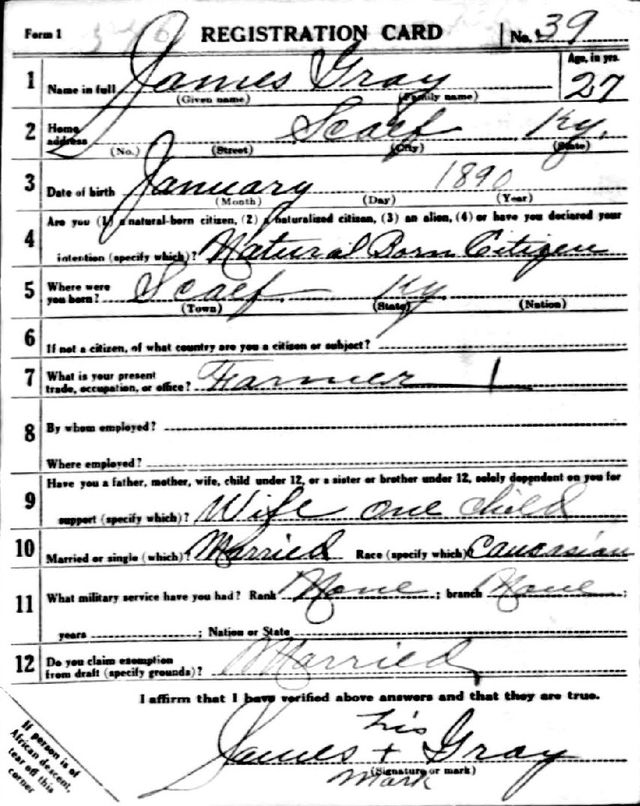 Form 1 REGISTRATION CARD No. 39
1 Name in full James Gray Age, in yrs. 27
(Given name) (Family name)
2 Home address Scalf Ky.
(No.) (Street) (City) (State)
3 Date of birth January 1890
(Month) (Day) (Year)
4 Are you (1) a natural-born citizen, (2) a naturalized citizen, (3) an alien, (4) or have you declared your
intention (specify which)? Natural Born Citizen
5 Where were you born? Scalf Ky.
(Town) (State) (Nation)
6 If not a citizen, of what country are you a citizen or subject?
7 What is your present
trade, occupation, or office? Farmer 1
8 By whom employed?
Where employed?
9 Have you a father, mother, wife, child under 12, or a sister or brother under 12, solely dependent on you for
support (specify which)? Wife one child
10 Married or single (which)? Married Race (specify which) Caucasian
11 What military service have you had? Rank None ; branch None ;
years ; Nation or State
12 Do you claim exemption
from draft (specify grounds)? Married
I affirm that I have verified above answers and that they are true.
his
James + Gray
(Signature or mark)
mark
If person is of
African descent,
tear off this
corner